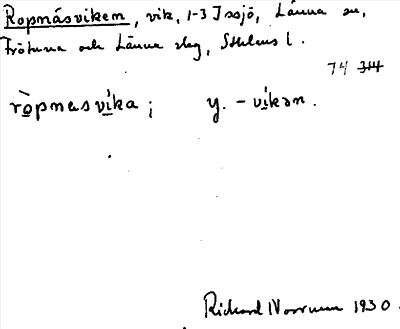 Ropnäsviken, vik, 1-3 Issjö, Länna sn,
Frötuna och Länna slg, Sthlms l.
74 314
ròpnasvika; y. -vikən.
Rickard Norrman 1930.